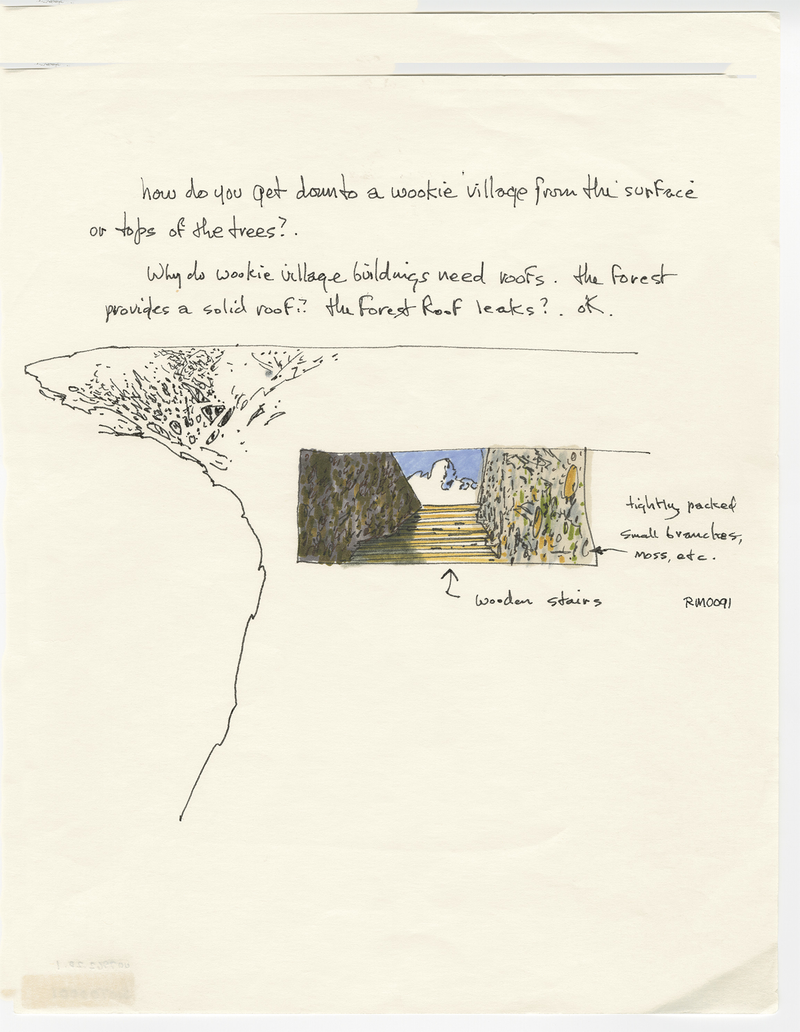 how do you get down to a wookie village from the surface
or tops of the trees?.
Why do wookie village buildings need roofs. the forest
provides a solid roof:? the Forest Roof leaks?. ok.
tightly packed
small branches,
moss, etc.
wooden stairs
RM0091